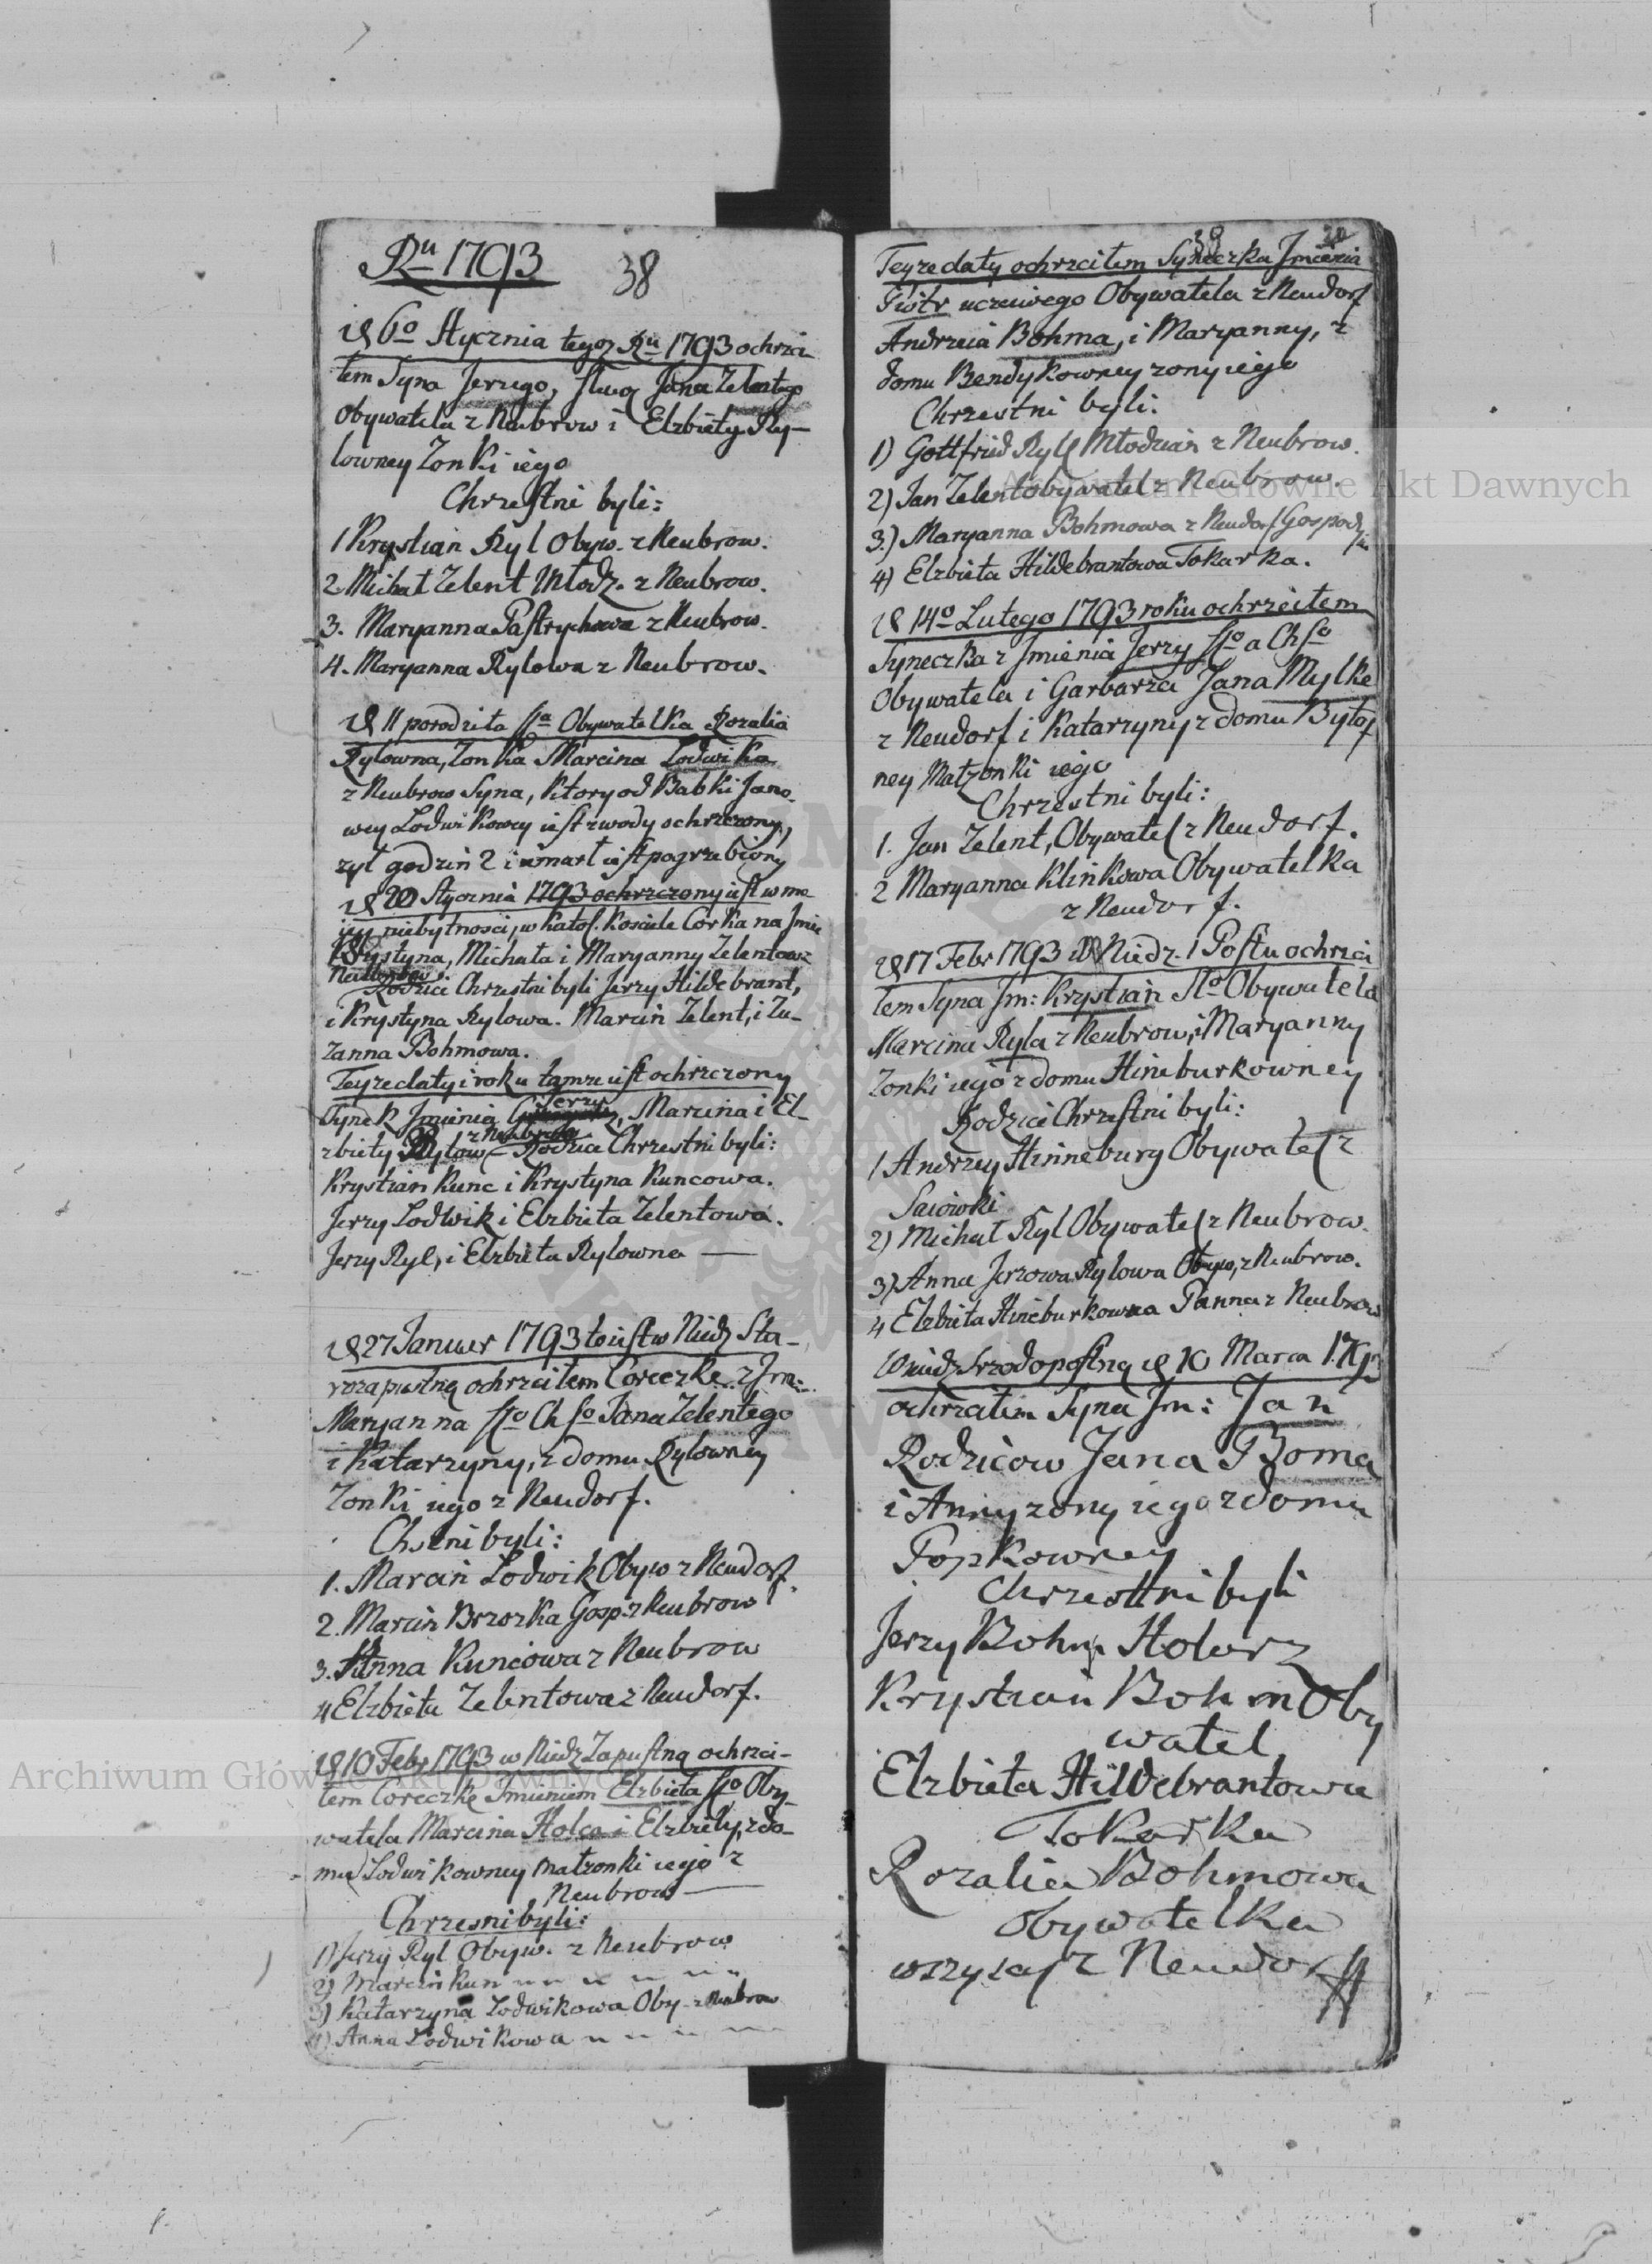 Ru 1793
38
d 6o Stycznia tegoż Ru 1793 ochrzci
łem Syna Jerzego, Jana Zelentego
Obywatela z Neubrow i Elzbiety Ry-
lowney Zonki iego
Chrzestni byli:
1 Krystian Ryl Obyw. z Neubrow.
2 Michał Zelent Młodz. z Neubrow.
3. Maryanna Pastrychowa z Neubrow.
4. Maryanna Rylowa z Neubrow.
d 11 porodziła Obywatelka Rozalia
Rylowna, Zonka Marcina Lodwika
z Neubrow Syna, ktory od Babki Jano-
wey Lodwikowey iest z wody ochrzczony,
zył godzin 2 i umarł iest pogrzebiony
d 20 Stycznia 1793 ochrzczony iest w mo
iey niebytnosci, w Katol. Kosciele Corka na Jmie
Krystyna, Michała i Maryanny Zelentow z
Neubrow
Rodzice Chrzestni byli Jerzy Hildebrant,
i Krystyna Rylowa. Marcin Zelent, i Zu-
zanna Bohmowa.
Teyze daty i roku tamze iest ochrzczony
Jerzy
Synek Jmienia Marcina i El-
z Neubrow
zbiety Rylow Rodzice Chrzestni byli:
Krystian Kunc i Krystyna Kuncowa.
Jerzy Lodwik i Elzbieta Zelentowa.
Jerzy Ryl, i Elzbieta Rylowna —
d 27 Januar 1793 to iest w Niedz Sta-
rozapustną ochrzciłem Coreczkę z Jm:
Maryanna Jana Zelentego
i Katarzyny, z domu Rylowney
Zonki iego z Neudorf.
Chstni byli:
1. Marcin Lodwik Obyw z Neudorf.
2. Marcin Brzozka Gosp. z Neubrow
3. Anna Kuncowa z Neubrow
4 Elzbieta Zelentowa z Neudorf.
d 10 Febr 1793 w Niedz Zapustną ochrzci-
łem Coreczkę Jmieniem Elzbieta Oby-
watela Marcina Holca i Elzbiety, z do-
mu Lodwikowney małzonki iego z
Neubrow —
Chrzesni byli:
1) Jerzy Ryl Obyw. z Neubrow
2) Marcin Kun
3) Katarzyna Lodwikowa Oby z Neubrow
4) Anna Lodwikowa
39
Teyze daty ochrzciłem Syneczka Jmienia
Piotr uczciwego Obywatela z Neudorf
Andrzeia Bohma, i Maryanny, z
domu Bendykowney zony iego
Chrzestni byli:
1) Gottfried Ryl Młodzian z Neubrow.
2) Jan Zelent obywatel z Neubrow.
3.) Maryanna Bohmowa z Neudorf Gospody
4) Elzbieta Hildebrantowa Tokarka.
d 14o Lutego 1793 roku ochrzciłem
Syneczka z Jmienia Jerzy
Obywatela i Garbarza Jana Mylke
z Neudorf i Katarzyny z domu
ney Małzonki iego
Chrzestni byli:
1. Jan Zelent, Obywatel z Neudorf.
2 Maryanna Klinkowa Obywatelka
z Neudorf.
d 17 Febr 1793 Niedz. 1 Postu ochrzci
łem Syna Jm: Krystian Obywatela
Marcina Ryla z Neubrow, i Maryanny
Zonki iego z domu Hineburkowney
Rodzice Chrzestni byli:
1 Andrzey Hinneburg Obywatel z
2) Michał Ryl Obywatel z Neubrow.
3) Anna Jerzowa Rylowa Obyw, z Neubrow.
4 Elzbieta Hineburkowna Panna z Neubrow
W niedz Srzodopostną d 10 Marca 1793
ochrzciłem Syna Jm: Jan
Rodzicow Jana Boma
i Anny zony iego z domu
Popkowney
Chrzestni byli
Jerzy Bohm Stolarz
Krystian Bohm Oby
watel
Elzbieta Hildebrantowa
Tokarka
Rozalia Bohmowa
obywatelka
wszyscy z Neudorf
Archiwum Główne Akt Dawnych
Archiwum Główne Akt Dawnych